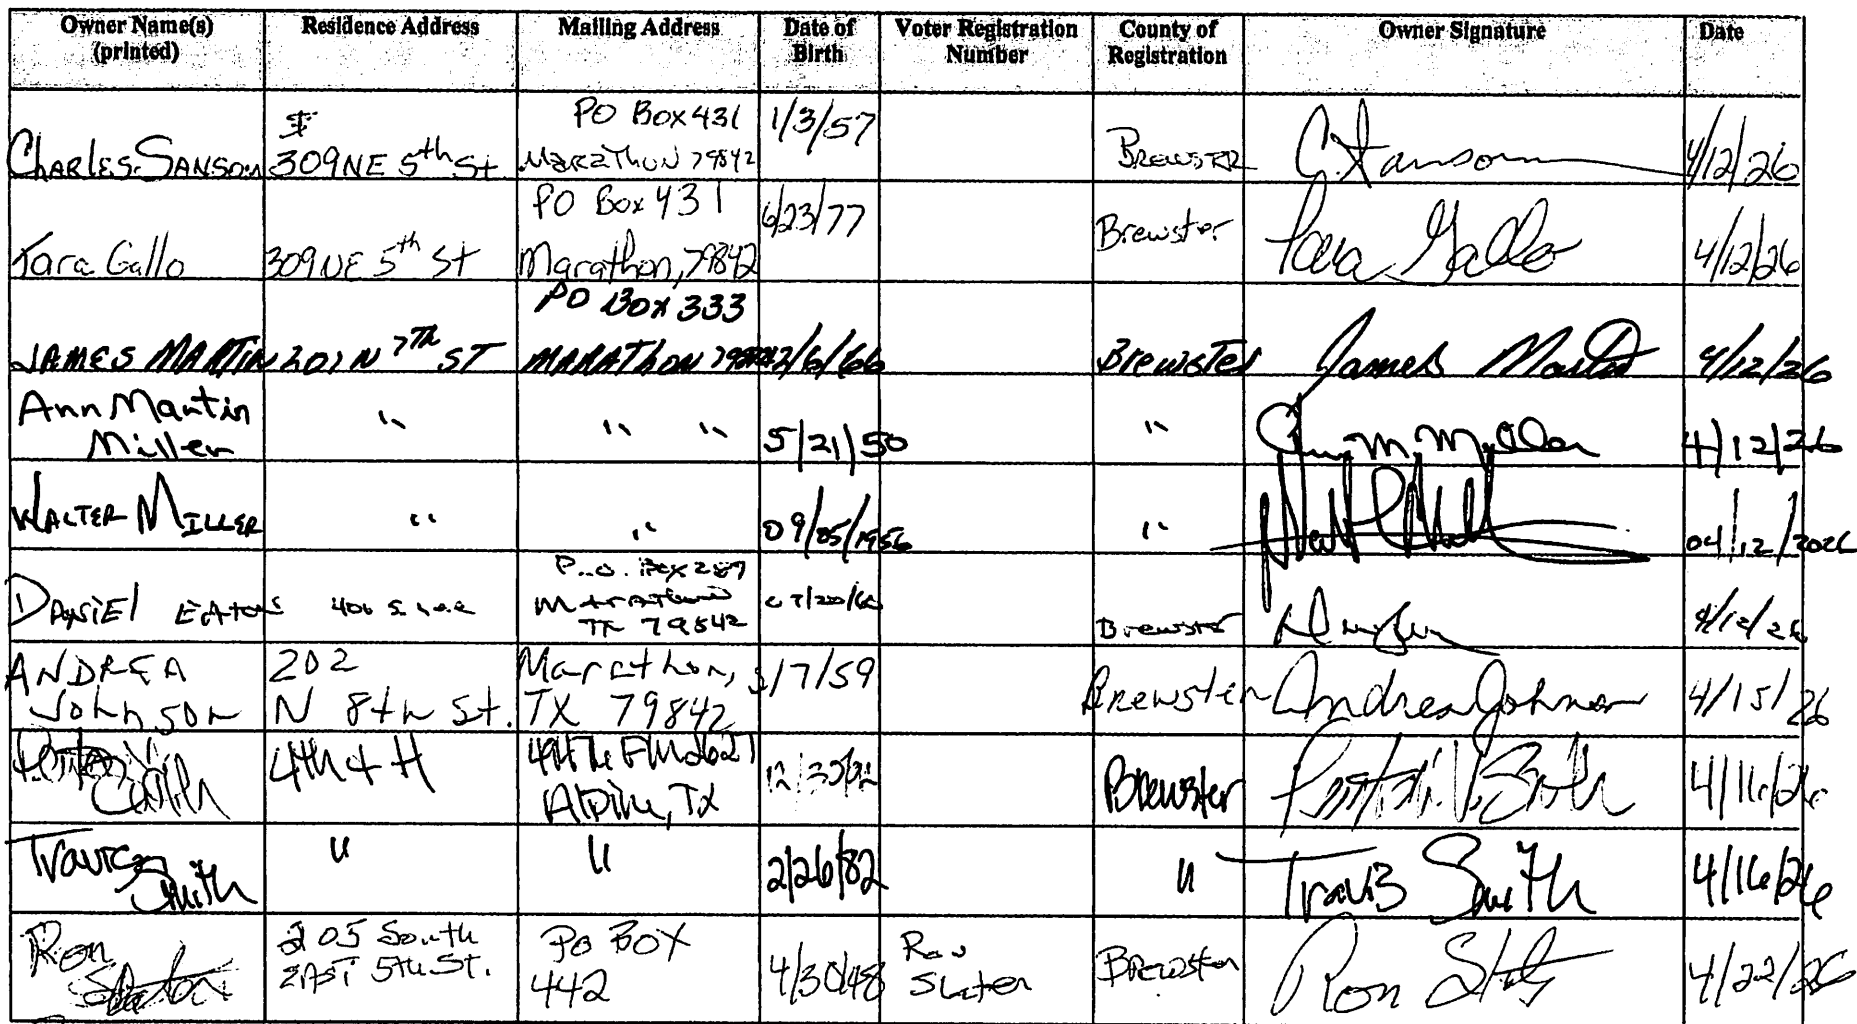 Owner Name(s) (printed) Residence Address Mailing Address Date of Birth Voter Registration Number County of Registration Owner Signature Date
CHARLES SANSOM 309 NE 5th St PO Box 431 MARATHON 79842 1/3/57 BREWSTER C Sansom 4/12/26
Tara Gallo 309 NE 5th St PO Box 431 Marathon, 79842 6/23/77 Brewster Tara Gallo 4/12/26
JAMES MARTIN 201 N 7TH ST PO Box 333 MARATHON 79842 2/6/66 Brewster James Martin 4/12/26
Ann Martin Miller " " " 5/21/50 " Ann M. Miller 4/12/26
WALTER MILLER " " 09/05/1956 " 04/12/2026
DANIEL EATON 406 S. P.O. Box 289 Marathon TX 79842 Brewster 4/12/26
ANDREA Johnson 202 N 8th St. Marathon, TX 79842 /7/59 Brewster Andrea Johnson 4/15/26
4th & H Alpine, TX Brewster Smith 4/16/26
Travis Smith " " 2/26/82 " Travis Smith 4/16/26
Ron 205 South EAST 5th St. PO BOX 442 4/30/48 Ron Slaten Brewster Ron 4/22/26